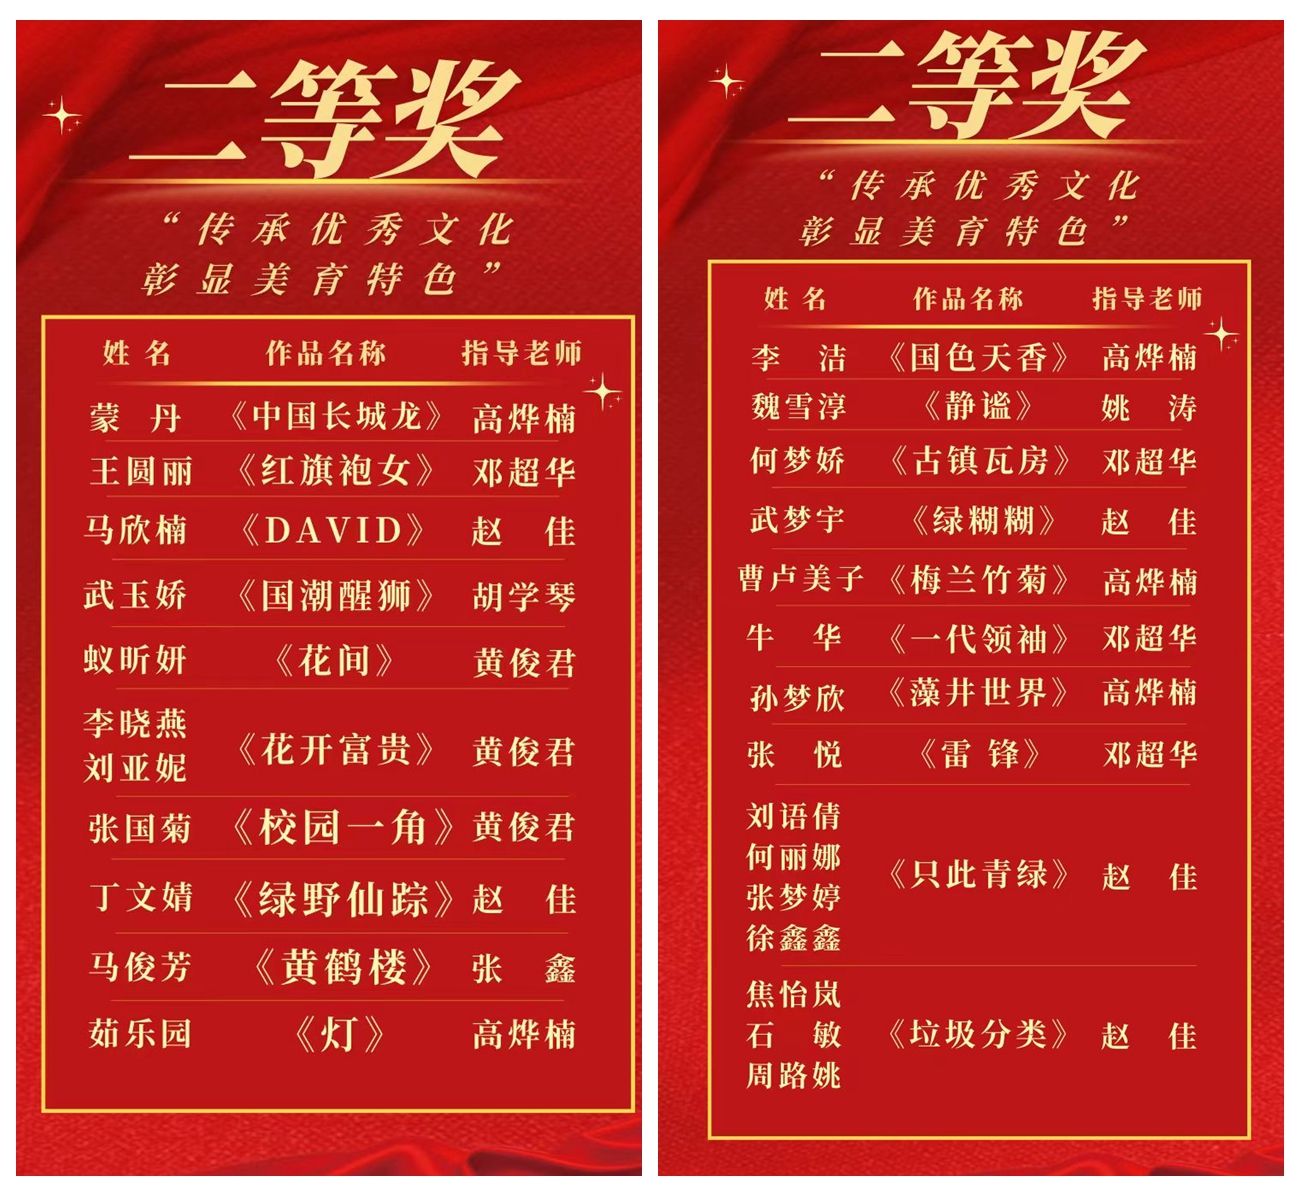 二等奖
“传承优秀文化
彰显美育特色”
姓 名 作品名称 指导老师
蒙 丹 《中国长城龙》 高烨楠
王圆丽 《红旗袍女》 邓超华
马欣楠 《DAVID》 赵 佳
武玉娇 《国潮醒狮》 胡学琴
蚁昕妍 《花间》 黄俊君
李晓燕
刘亚妮 《花开富贵》 黄俊君
张国菊 《校园一角》 黄俊君
丁文婧 《绿野仙踪》 赵 佳
马俊芳 《黄鹤楼》 张 鑫
茹乐园 《灯》 高烨楠
二等奖
“传承优秀文化
彰显美育特色”
姓 名 作品名称 指导老师
李 洁 《国色天香》 高烨楠
魏雪淳 《静谧》 姚 涛
何梦娇 《古镇瓦房》 邓超华
武梦宇 《绿糊糊》 赵 佳
曹卢美子 《梅兰竹菊》 高烨楠
牛 华 《一代领袖》 邓超华
孙梦欣 《藻井世界》 高烨楠
张 悦 《雷 锋》 邓超华
刘语倩
何丽娜
《只此青绿》 赵 佳
张梦婷
徐鑫鑫
焦怡岚
石 敏 《垃圾分类》 赵 佳
周路姚